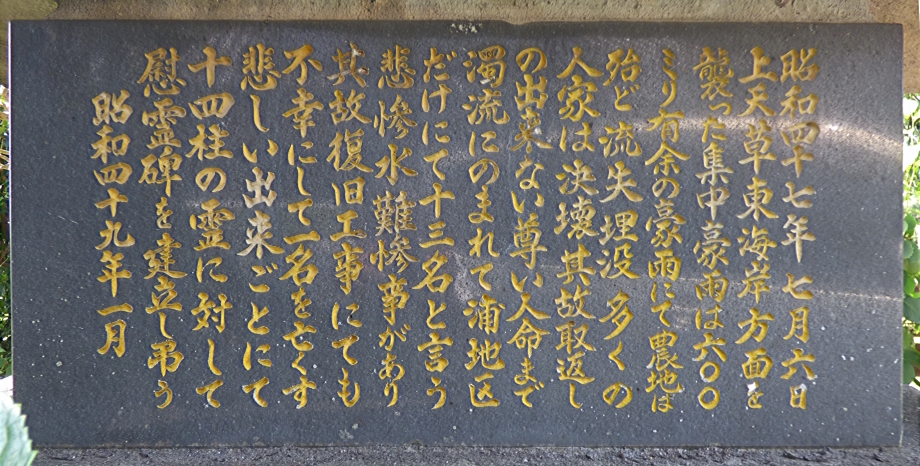 昭和四十七年七月六日
上天草東海岸方面を
襲った集中豪雨は六〇〇
ミリ有余の豪雨にて農地は
殆ど流失埋没多くの
人家は決壊其故取返し
の出来ない尊い人命まで
濁流にのまれて浦地区
だけにて十三名と言う
悲惨水難惨事があり
其故復旧工事にても
不幸にして一名を亡くす
悲しい出来ごとにて
十四柱の霊に対して
慰霊碑を建立し弔う
昭和四十九年一月